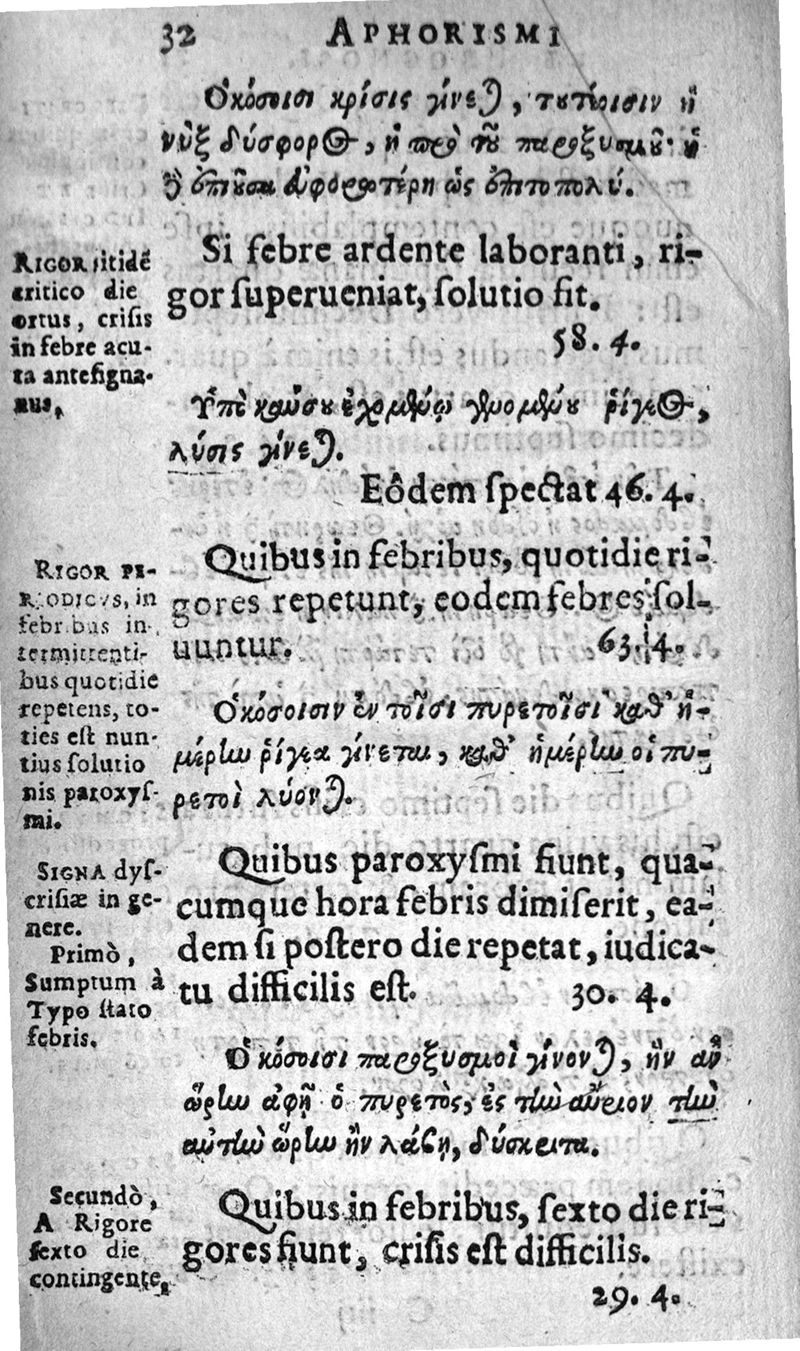 32 APHORISMI
Ὁκόσοισι κρίσις γίνεται, τουτέοισιν ἡ
νὺξ δύσφορος, ἡ πρὸ τοῦ παροξυσμοῦ· ἡ
δὲ ἐπιοῦσα εὐφορωτέρη ὡς ἐπιτοπολύ.
RIGOR sitidẽ
critico die
ortus, crisis
in febre acu-
ta antesigna-
nus,
Si febre ardente laboranti, ri-
gor ſuperueniat, ſolutio fit.
58. 4.
Ὑπὸ καύσου ἐχομένῳ γενομένου ῥίγεος,
λύσις γίνεται.
Eôdem ſpectat 46. 4.
RIGOR PE-
RIODICVS, in
febribus in-
termittenti-
bus quotidie
repetens, to-
ties eſt nun-
tius ſolutio
nis paroxyſ-
mi.
Quibus in febribus, quotidie ri-
gores repetunt, eodem febres ſol-
uuntur. 63. 4.
Ὁκόσοισιν ἐν τοῖσι πυρετοῖσι καθ' ἡ-
μέρην ῥίγεα γίνεται, καθ' ἡμέρην οἱ πυ-
ρετοὶ λύονται.
SIGNA dyſ-
criſiæ in ge-
nere.
Primò,
Sumptum à
Typo ſtato
febris.
Quibus paroxyſmi fiunt, qua-
cumque hora febris dimiſerit, ea-
dem ſi poſtero die repetat, iudica-
tu difficilis eſt. 30. 4.
Ὁκόσοισι παροξυσμοὶ γίνονται, ἣν ἂν
ὥρην ἀφῇ ὁ πυρετὸς, ἐς τὴν αὔριον τὴν
αὐτὴν ὥρην ἢν λάβῃ, δύσκριτα.
Secundò,
A Rigore
ſexto die
contingente,
Quibus in febribus, ſexto die ri-
gores fiunt, criſis eſt difficilis.
29. 4.